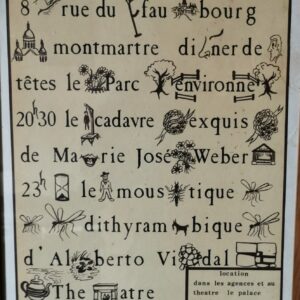 8 rue du faubourg
montmartre dîner de
têtes le Parc environne
20h30 le cadavre exquis
de Marie José Weber
23h le moustique
dithyrambique
d'Alberto Vidal
The atre
location
dans les agences et au
theatre le palace